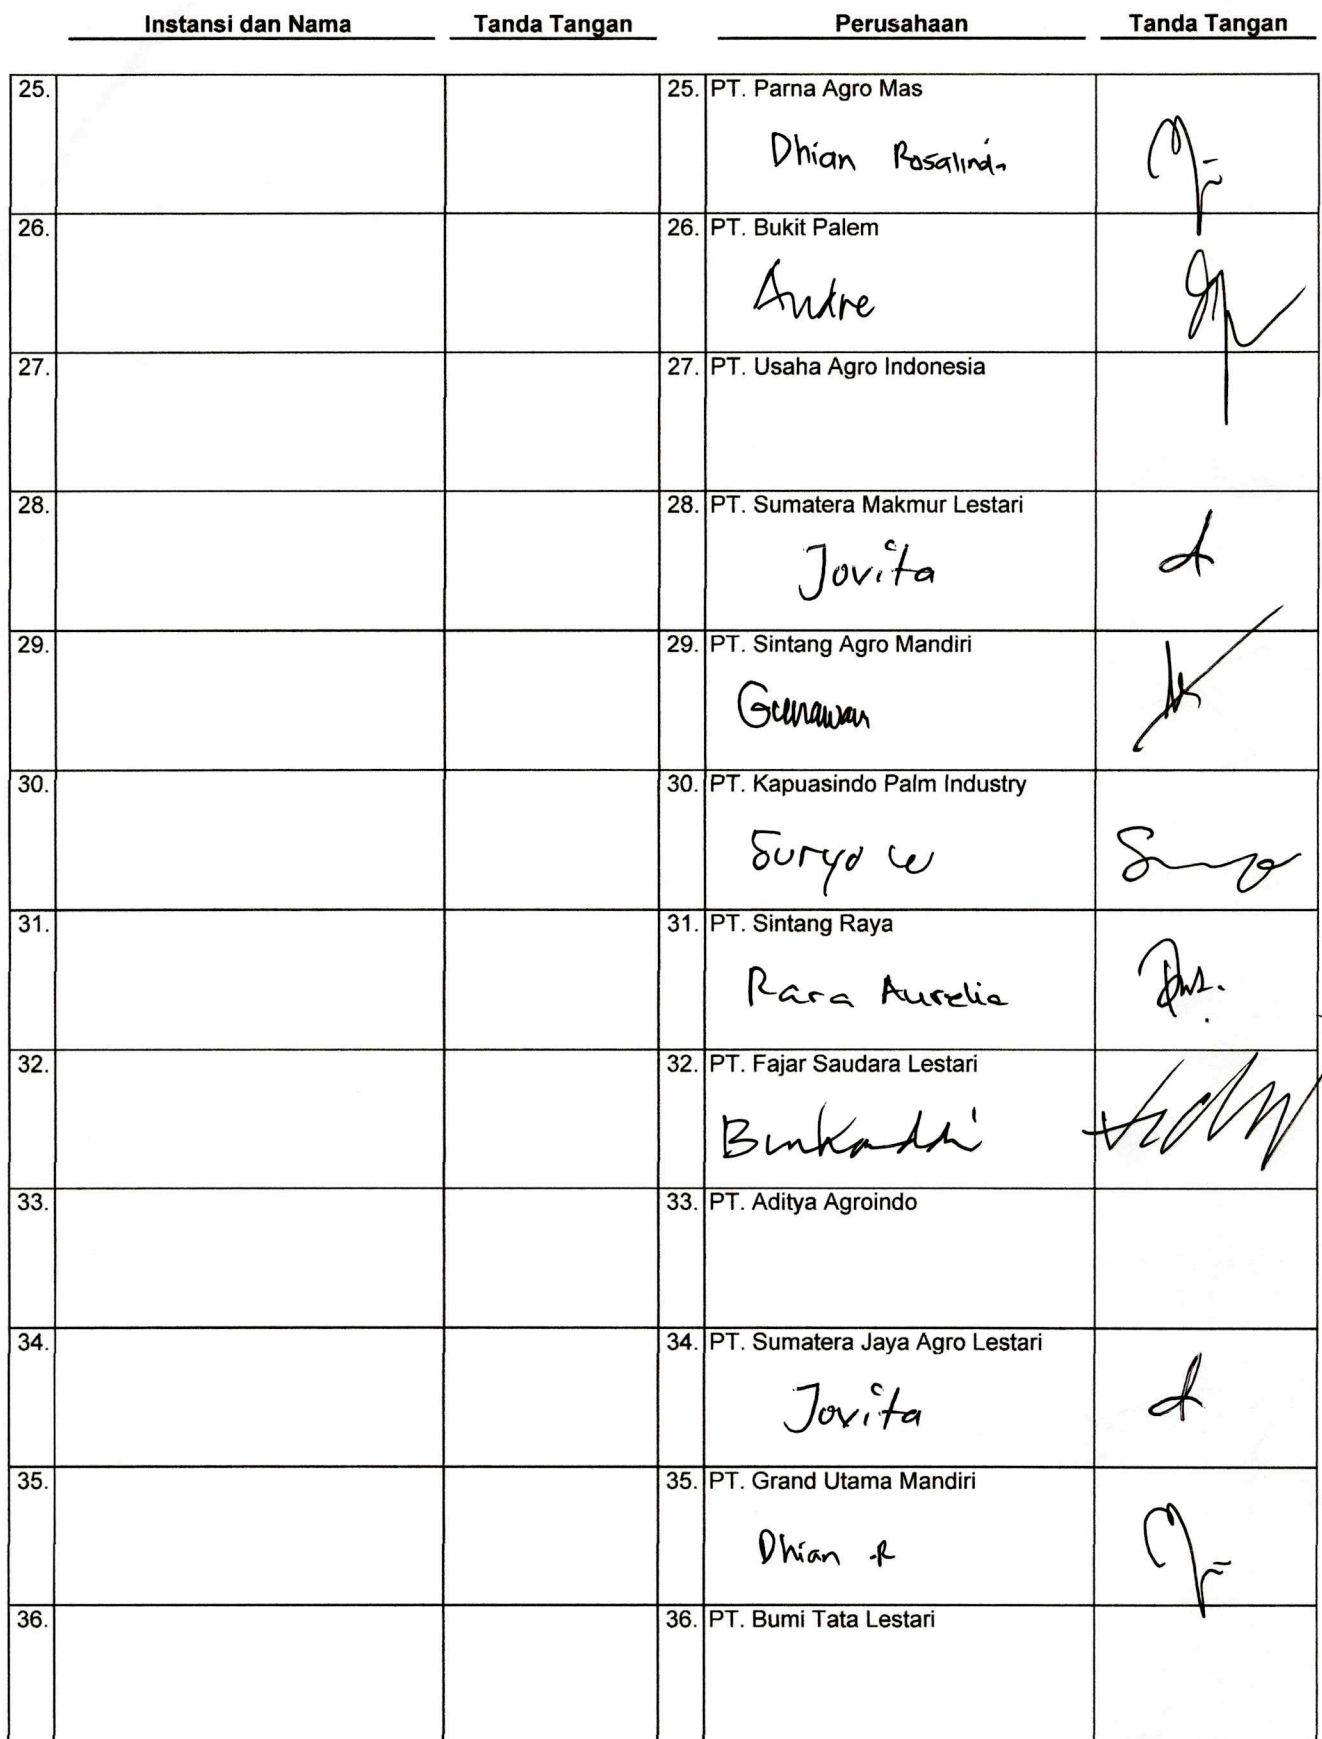 Instansi dan Nama Tanda Tangan Perusahaan Tanda Tangan
25. 25. PT. Parna Agro Mas
Dhian Rosalinda
26. 26. PT. Bukit Palem
Andre
27. 27. PT. Usaha Agro Indonesia
28. 28. PT. Sumatera Makmur Lestari
Jovita
29. 29. PT. Sintang Agro Mandiri
Gunawan
30. 30. PT. Kapuasindo Palm Industry
Suryo W
31. 31. PT. Sintang Raya
Rara Aurelia
32. 32. PT. Fajar Saudara Lestari
33. 33. PT. Aditya Agroindo
34. 34. PT. Sumatera Jaya Agro Lestari
Jovita
35. 35. PT. Grand Utama Mandiri
Dhian R
36. 36. PT. Bumi Tata Lestari